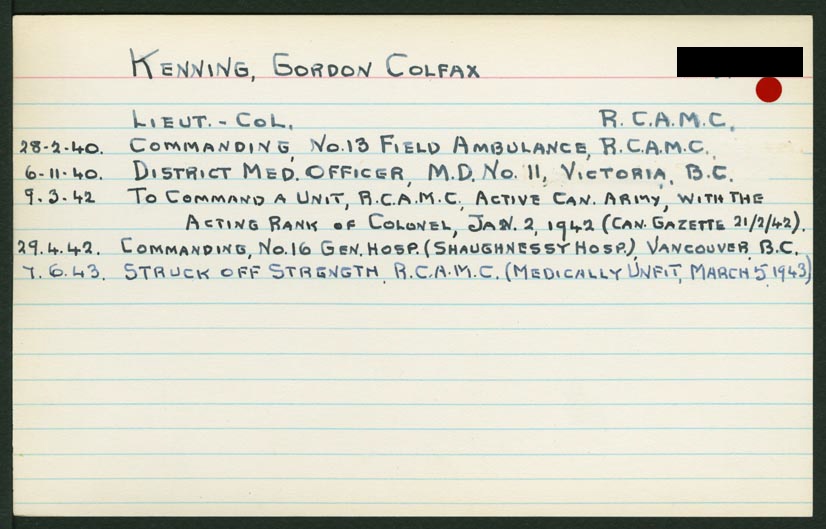 KENNING, GORDON COLFAX
LIEUT. - COL. R.C.A.M.C.
28-2-40. COMMANDING, NO.13 FIELD AMBULANCE, R.C.A.M.C.
6-11-40. DISTRICT MED. OFFICER, M.D. NO. 11, VICTORIA, B.C.
9.3.42 TO COMMAND A UNIT, R.C.A.M.C. ACTIVE CAN. ARMY, WITH THE
ACTING RANK OF COLONEL, JAN. 2, 1942 (CAN. GAZETTE 21/2/42).
29.4.42. COMMANDING, NO.16 GEN. HOSP. (SHAUGHNESSY HOSP.), VANCOUVER, B.C.
7.6.43. STRUCK OFF STRENGTH, R.C.A.M.C. (MEDICALLY UNFIT, MARCH 5, 1943)